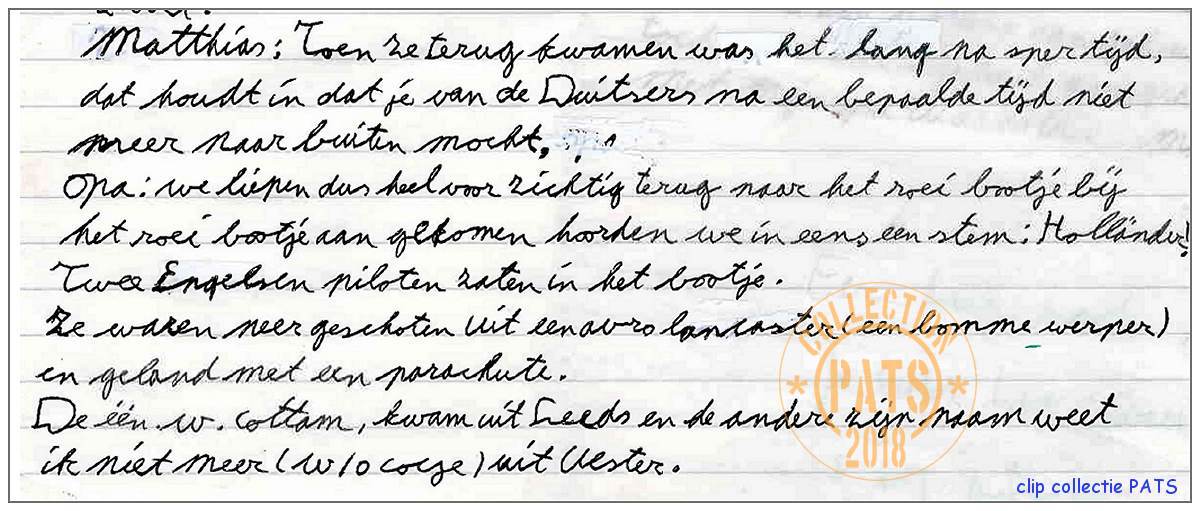 Matthias: Toen ze terug kwamen was het lang na spertijd,
dat houdt in dat je van de Duitsers na een bepaalde tijd niet
meer naar buiten mocht,
Opa: we liepen dus heel voorzichtig terug naar het roei bootje bij
het roei bootje aan gekomen hoorden we in eens een stem: Holländer!
Twee Engelsen piloten zaten in het bootje.
Ze waren neer geschoten uit een avro lancaster (een bomme werper)
en geland met een parachute.
De één w. cottam, kwam uit Leeds en de andere zijn naam weet
ik niet meer (w/o) uit Ulster.
COLLECTION
PATS
2018
clip collectie PATS